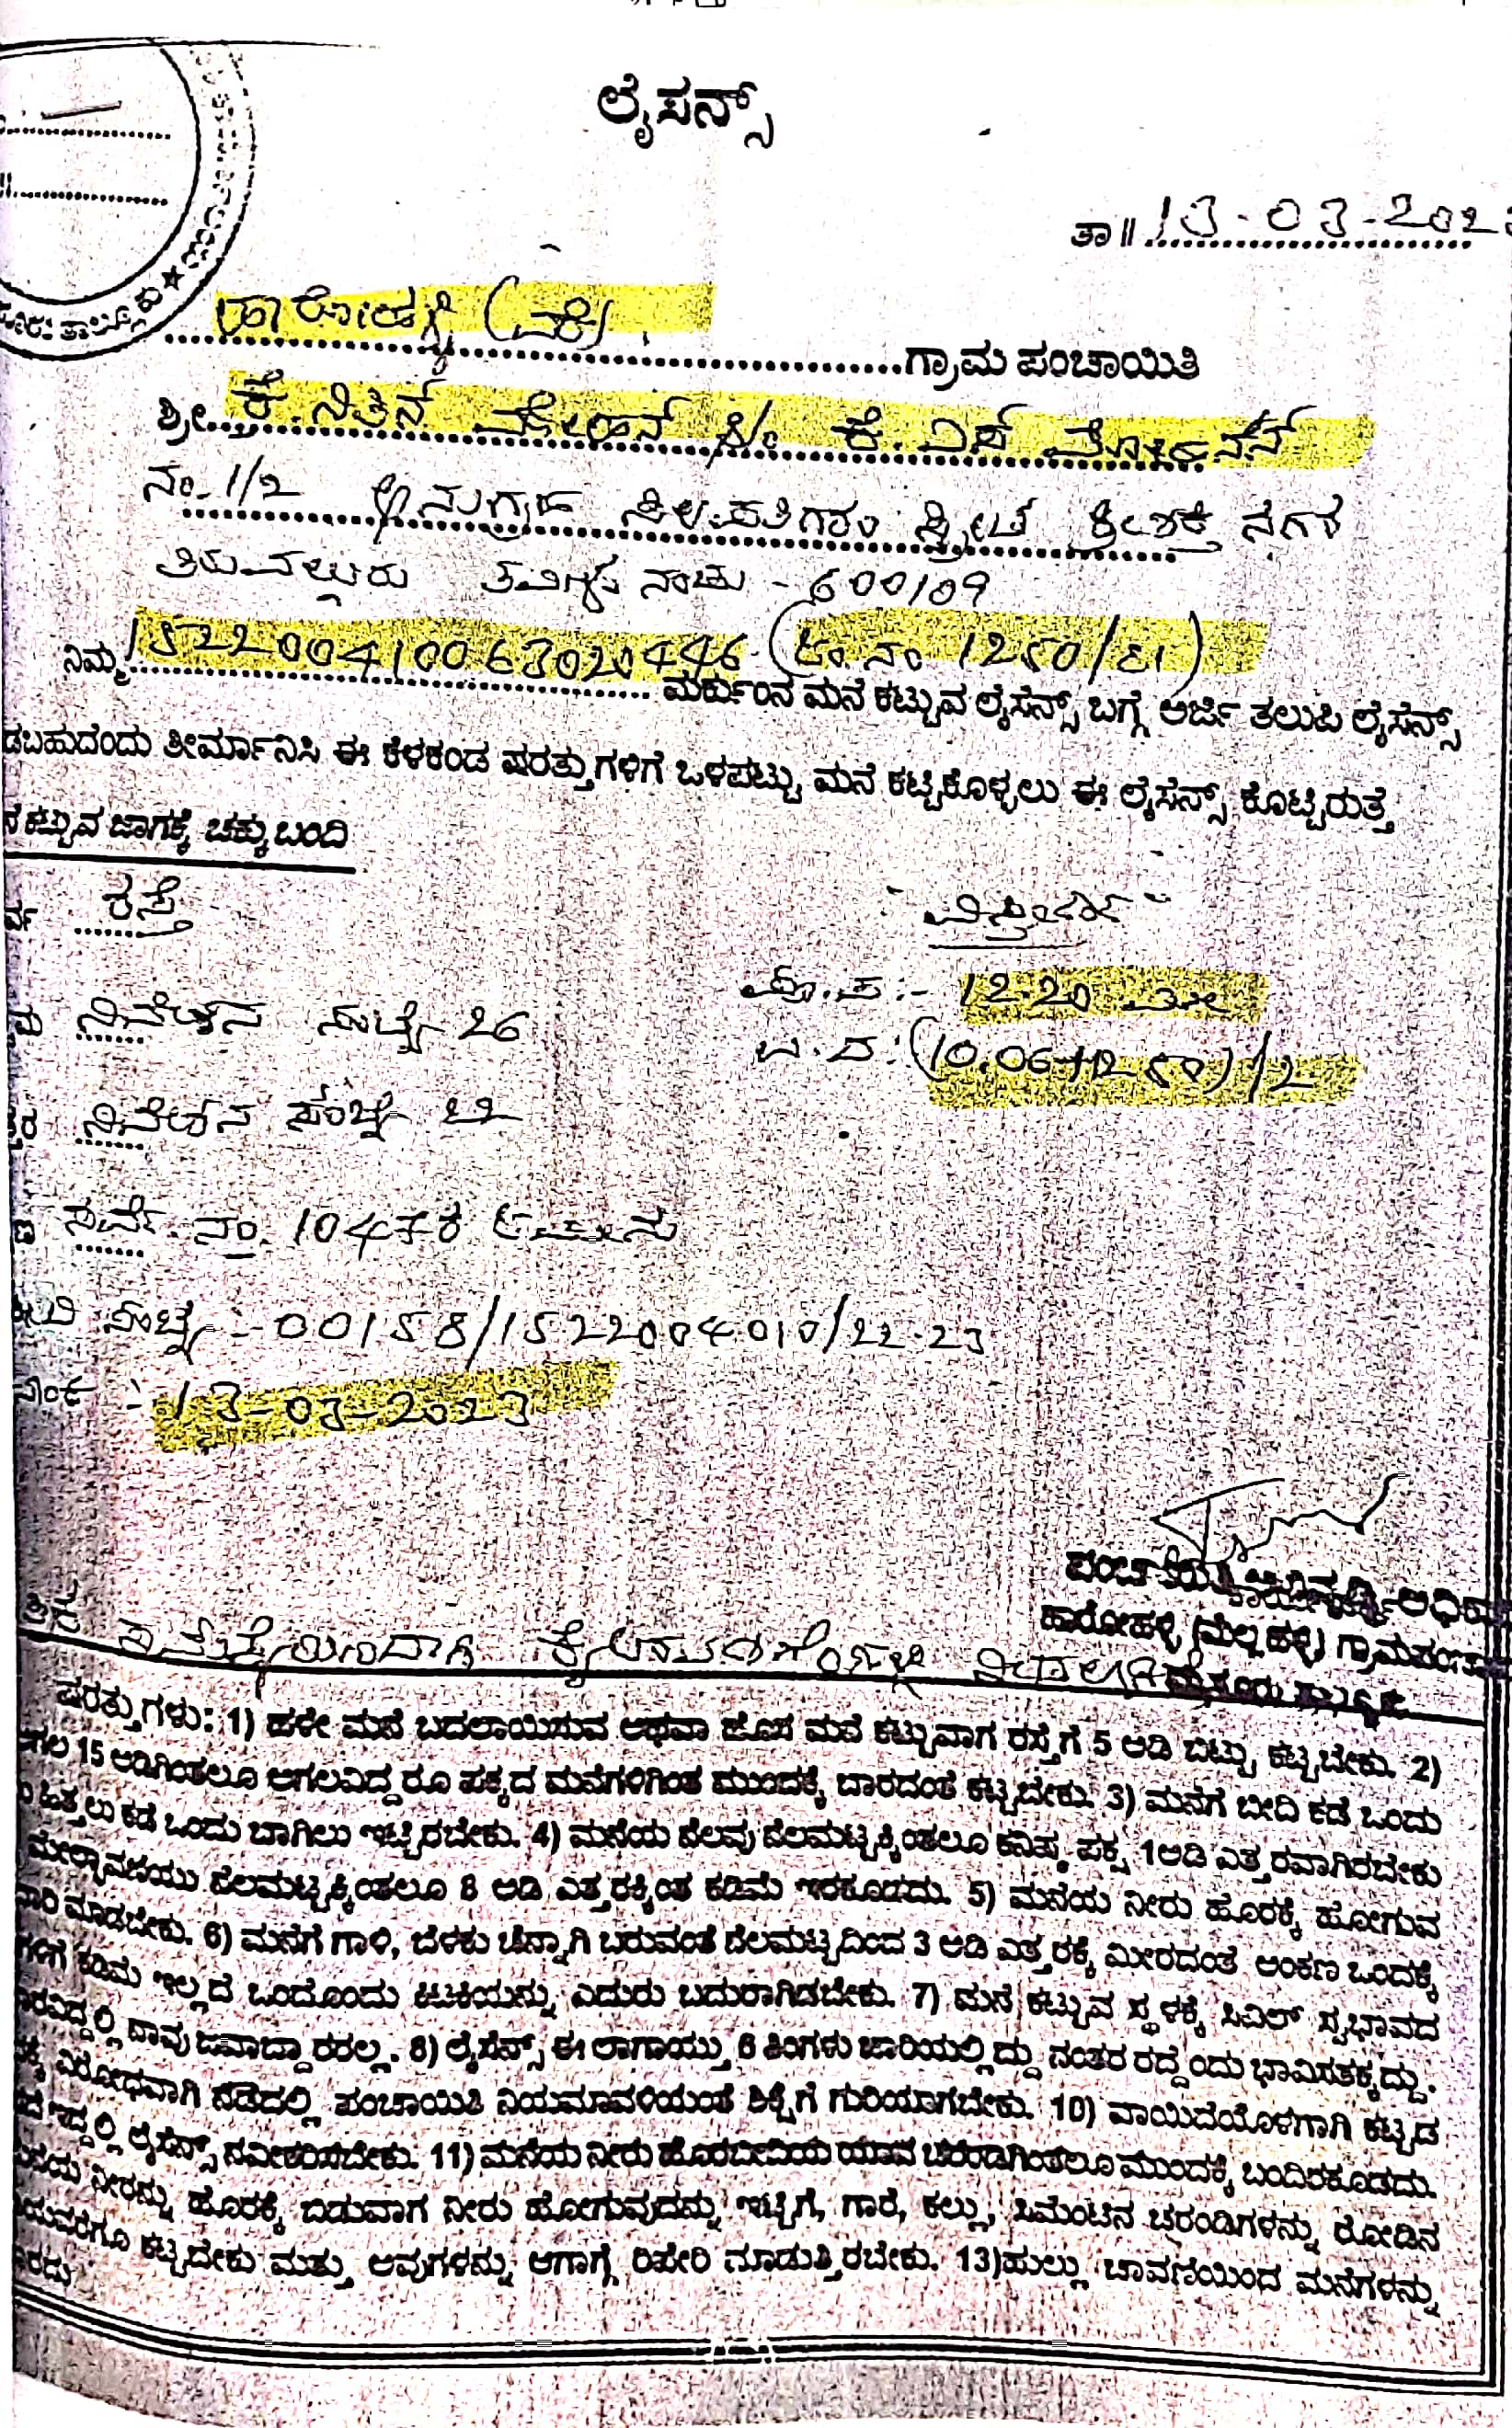 ಲೈಸನ್ಸ್
ತಾ॥ 13-03-202
ಗ್ರಾಮ ಪಂಚಾಯಿತಿ
ಶ್ರೀ ಕೆ. ನಿತಿನ್ ಮೋಹನ್ S/o ಕೆ. ಎಸ್ ಮೋಹನನ್
ನಂ. 1/2 ಅನುಗ್ರಹ ಸ್ಟ್ರೀಟ್ ನಗರ
ತಿರುವಳ್ಳೂರು ತಮಿಳು ನಾಡು - 600109
ನಿಮ್ಮ 152200410063020446
ಮರ್ಕುಂನ ಮನೆ ಕಟ್ಟುವ ಲೈಸೆನ್ಸ್ ಬಗ್ಗೆ ಅರ್ಜಿ ತಲುಪಿ ಲೈಸೆನ್ಸ್
ಡಬಹುದೆಂದು ತೀರ್ಮಾನಿಸಿ ಈ ಕೆಳಕಂಡ ಷರತ್ತುಗಳಿಗೆ ಒಳಪಟ್ಟು ಮನೆ ಕಟ್ಟಿಕೊಳ್ಳಲು ಈ ಲೈಸೆನ್ಸ್ ಕೊಟ್ಟಿರುತ್ತೆ
ನೆ ಕಟ್ಟುವ ಜಾಗಕ್ಕೆ ಚಕ್ಕುಬಂದಿ
ರ್ವ ರಸ್ತೆ
ವಿಸ್ತೀರ್ಣ
ಪೂ.ಪ :- 12.20
ಮ ನಿವೇಶನ ಸಂಖ್ಯೆ 26
ಉ.ದ : (10.06+12.50)/2
ತ್ತರ ನಿವೇಶನ ಸಂಖ್ಯೆ 22
ಣ ಸರ್ವೆ ನಂ. 104 ರ ಜಮೀನು
ಸಂಖ್ಯೆ :- 00158/1522004010/22-23
ನಾಂಕ : 13-03-2023
ಪಂಚಾಯಿತಿ ಅಭಿವೃದ್ಧಿ ಅಧಿಕಾ
ಹಾರೋಹಳ್ಳಿ (ಮೆಲ್ಲಹಳ್ಳಿ) ಗ್ರಾಮಪಂ
ಷರತ್ತುಗಳು: 1) ಹಳೇ ಮನೆ ಬದಲಾಯಿಸುವ ಅಥವಾ ಹೊಸ ಮನೆ ಕಟ್ಟುವಾಗ ರಸ್ತೆಗೆ 5 ಅಡಿ ಬಿಟ್ಟು ಕಟ್ಟಬೇಕು. 2)
ಅಗಲ 15 ಅಡಿಗಿಂತಲೂ ಅಗಲವಿದ್ದರೂ ಪಕ್ಕದ ಮನೆಗಳಿಗಿಂತ ಮುಂದಕ್ಕೆ ಬಾರದಂತೆ ಕಟ್ಟಬೇಕು. 3) ಮನೆಗೆ ಬೀದಿ ಕಡೆ ಒಂದು
ಹಿತ್ತಲು ಕಡೆ ಒಂದು ಬಾಗಿಲು ಇಟ್ಟಿರಬೇಕು. 4) ಮನೆಯ ನೆಲವು ನೆಲಮಟ್ಟಕ್ಕಿಂತಲೂ ಕನಿಷ್ಠ ಪಕ್ಷ 1ಅಡಿ ಎತ್ತರವಾಗಿರಬೇಕು
ಮೇಲ್ಛಾವಣಿಯು ನೆಲಮಟ್ಟಕ್ಕಿಂತಲೂ 8 ಅಡಿ ಎತ್ತರಕ್ಕಿಂತ ಕಡಿಮೆ ಇರಕೂಡದು. 5) ಮನೆಯ ನೀರು ಹೊರಕ್ಕೆ ಹೋಗುವ
ದಾರಿ ಮಾಡಬೇಕು. 6) ಮನೆಗೆ ಗಾಳಿ, ಬೆಳಕು ಚೆನ್ನಾಗಿ ಬರುವಂತೆ ನೆಲಮಟ್ಟದಿಂದ 3 ಅಡಿ ಎತ್ತರಕ್ಕೆ ಮೀರದಂತೆ ಅಂಕಣ ಒಂದಕ್ಕೆ
ಗಳಿಗೆ ಕಡಿಮೆ ಇಲ್ಲದೆ ಒಂದೊಂದು ಕಿಟಕಿಯನ್ನು ಎದುರು ಬದುರಾಗಿಡಬೇಕು. 7) ಮನೆ ಕಟ್ಟುವ ಸ್ಥಳಕ್ಕೆ ಸಿವಿಲ್ ಸ್ವಭಾವದ
ರವಿದ್ದಲ್ಲಿ ನಾವು ಜವಾಬ್ದಾರರಲ್ಲ. 8) ಲೈಸೆನ್ಸ್ ಈ ಲಾಗಾಯ್ತು 6 ತಿಂಗಳು ಜಾರಿಯಲ್ಲಿದ್ದು ನಂತರ ರದ್ದೆಂದು ಭಾವಿಸತಕ್ಕದ್ದು.
ಕ್ಕೆ ವಿರೋಧವಾಗಿ ನಡೆದಲ್ಲಿ ಪಂಚಾಯಿತಿ ನಿಯಮಾವಳಿಯಂತೆ ಶಿಕ್ಷೆಗೆ ಗುರಿಯಾಗಬೇಕು. 10) ವಾಯಿದೆಯೊಳಗಾಗಿ ಕಟ್ಟಡ
ದೆ ಇದ್ದಲ್ಲಿ ಲೈಸೆನ್ಸ್ ನವೀಕರಿಸಬೇಕು. 11) ಮನೆಯ ನೀರು ಹೊರಬೀದಿಯ ಯಾವ ಚರಂಡಿಗಿಂತಲೂ ಮುಂದಕ್ಕೆ ಬಂದಿರಕೂಡದು.
ನೆಯ ನೀರನ್ನು ಹೊರಕ್ಕೆ ಬಿಡುವಾಗ ನೀರು ಹೋಗುವುದನ್ನು ಇಟ್ಟಿಗೆ, ಗಾರೆ, ಕಲ್ಲು, ಸಿಮೆಂಟಿನ ಚರಂಡಿಗಳನ್ನು ರೋಡಿನ
ಯವರೆಗೂ ಕಟ್ಟಬೇಕು ಮತ್ತು ಅವುಗಳನ್ನು ಆಗಾಗ್ಗೆ ರಿಪೇರಿ ಮಾಡುತ್ತಿರಬೇಕು. 13)ಹುಲ್ಲು ಚಾವಣಿಯಿಂದ ಮನೆಗಳನ್ನು